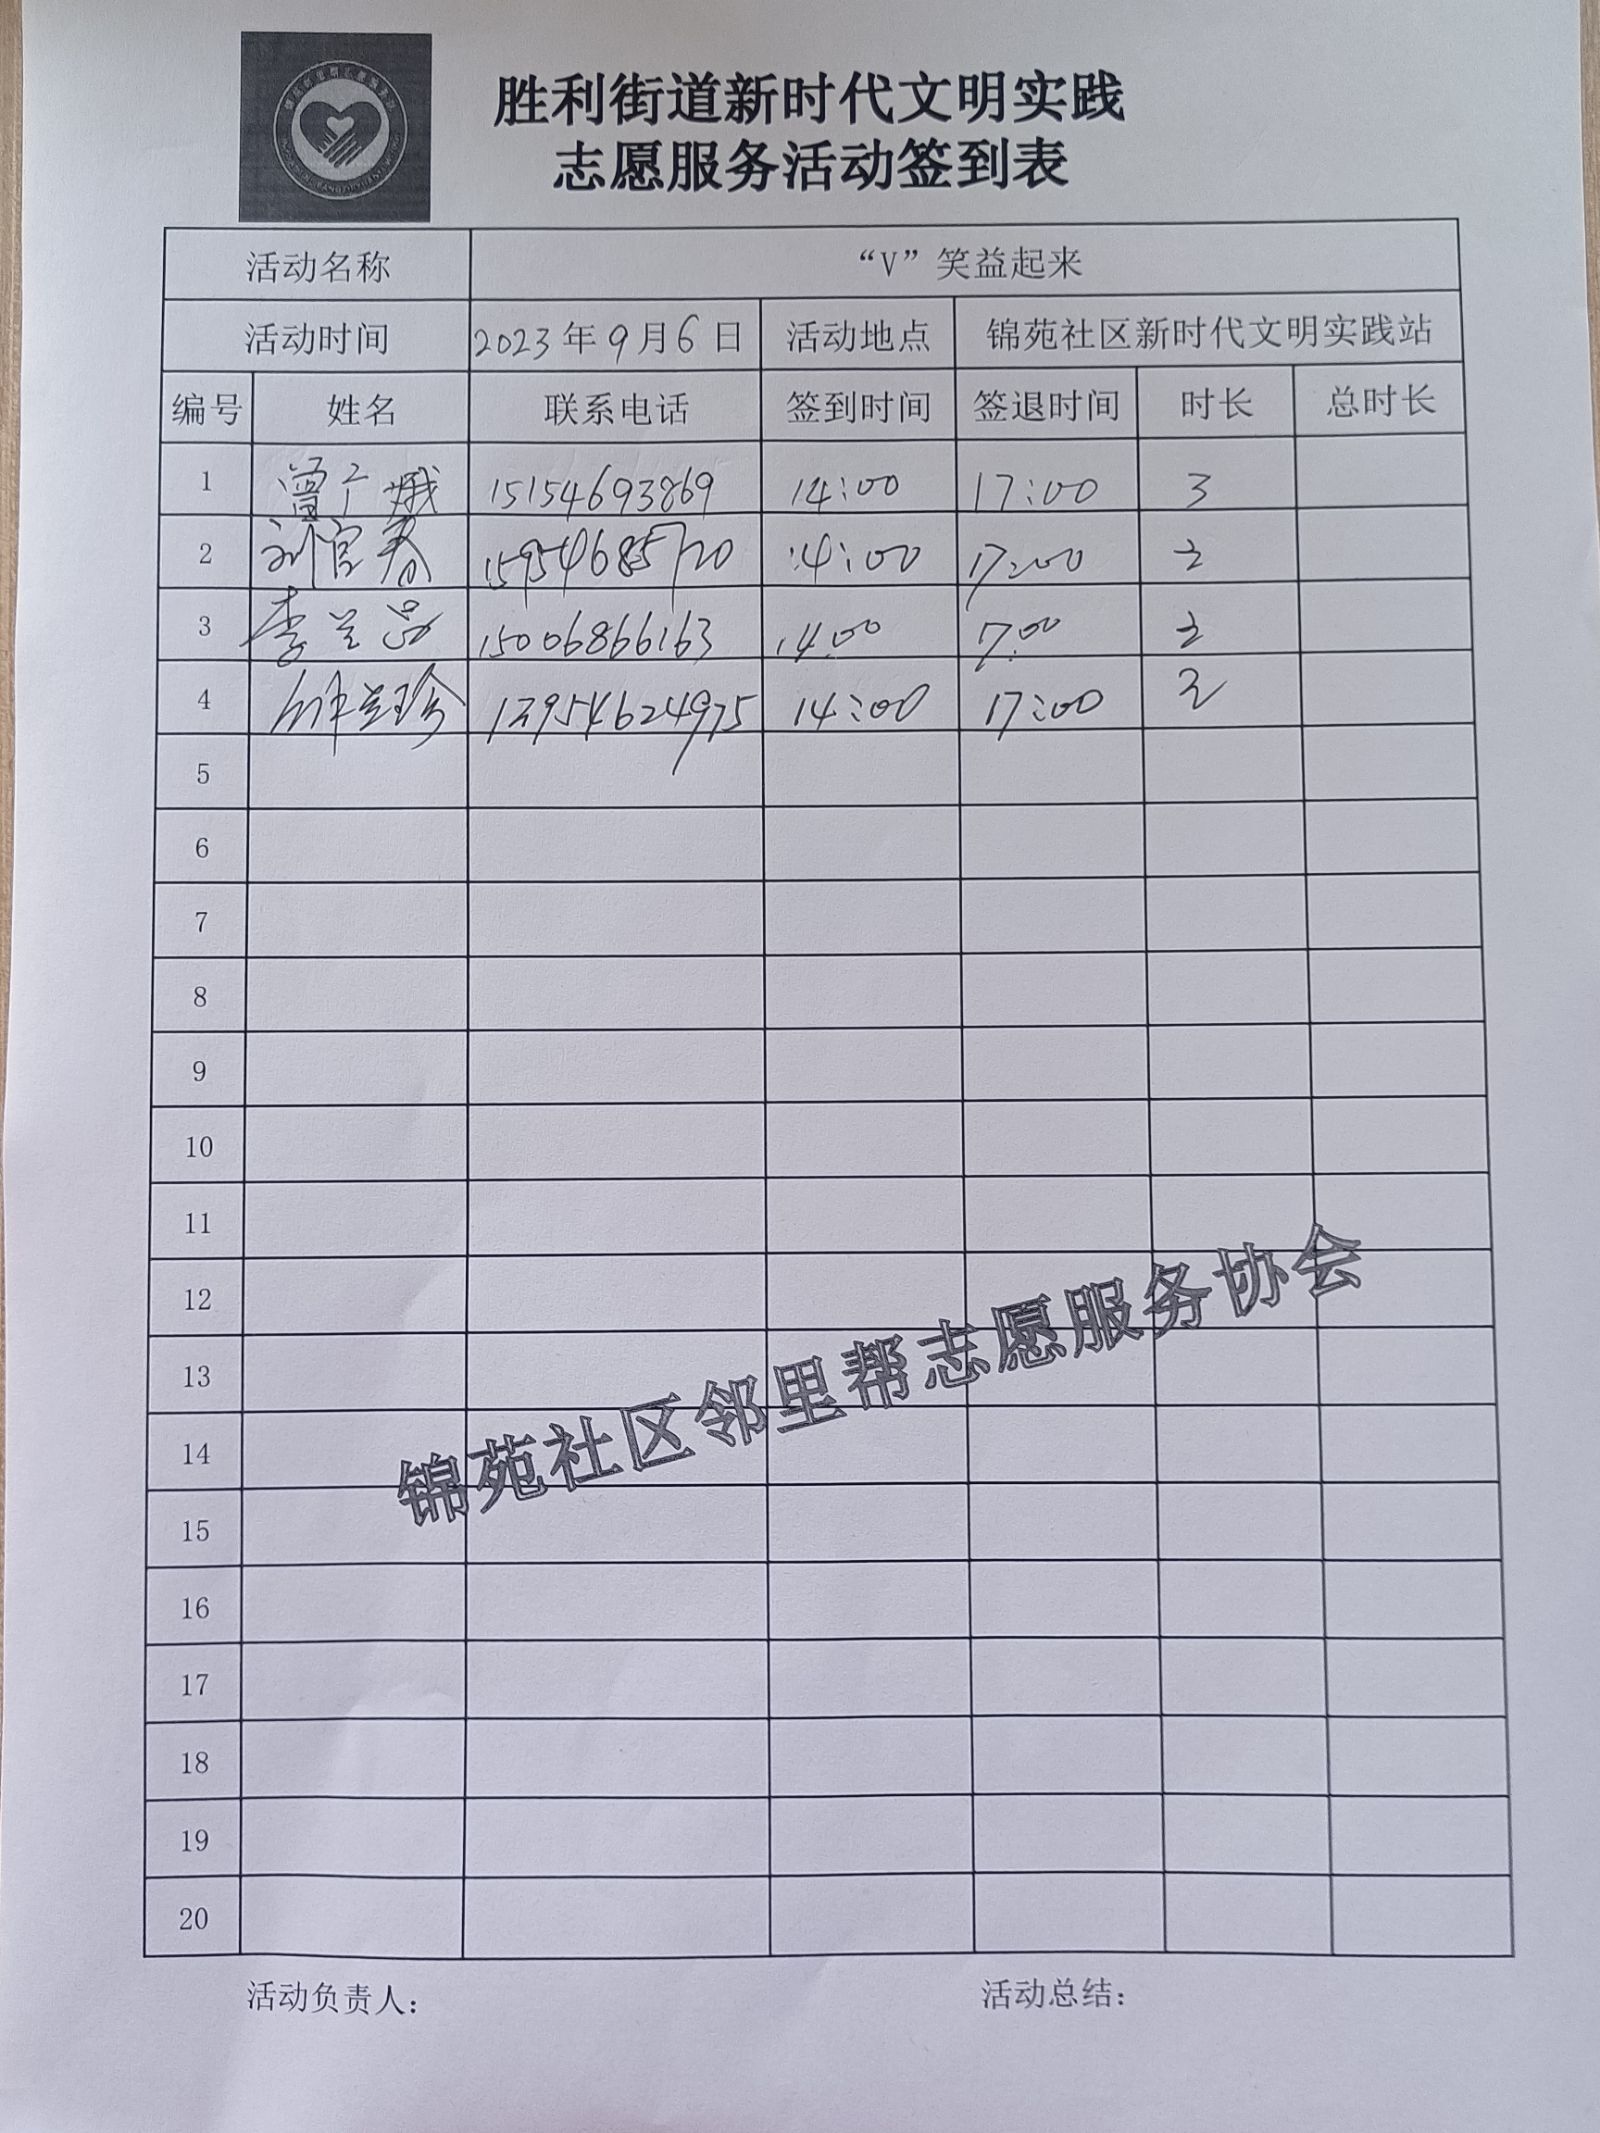 胜利街道新时代文明实践
志愿服务活动签到表
活动名称 “V”笑益起来
活动时间 2023年9月6日 活动地点 锦苑社区新时代文明实践站
编号 姓名 联系电话 签到时间 签退时间 时长 总时长
1 曾广娥 15154693869 14:00 17:00 3
2 刘官春 15954685720 14:00 17:00 3
3 李兰 15006866163 14:00 17:00 3
4 兰珍 13954624975 14:00 17:00 3
5
6
7
8
9
10
11
12
13
14
15
16
17
18
19
20
锦苑社区邻里帮志愿服务协会
活动负责人： 活动总结：